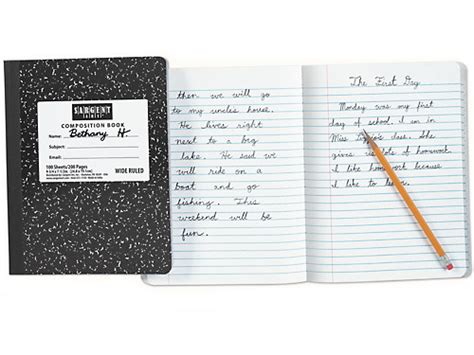 SARGENT
COMPOSITION BOOK
Name: Bethany H
Subject:
Email:
100 Sheets/200 Pages
WIDE RULED
then we will go
to my uncles house.
He lives right
next to a big
lake. He said we
will ride on a
boat and go
fishing. This
weekend will be
fun.
The First Day
Monday was my first
day of school. I am in
Miss class. She
gives us lots of homework
I like homework because
I like to learn.